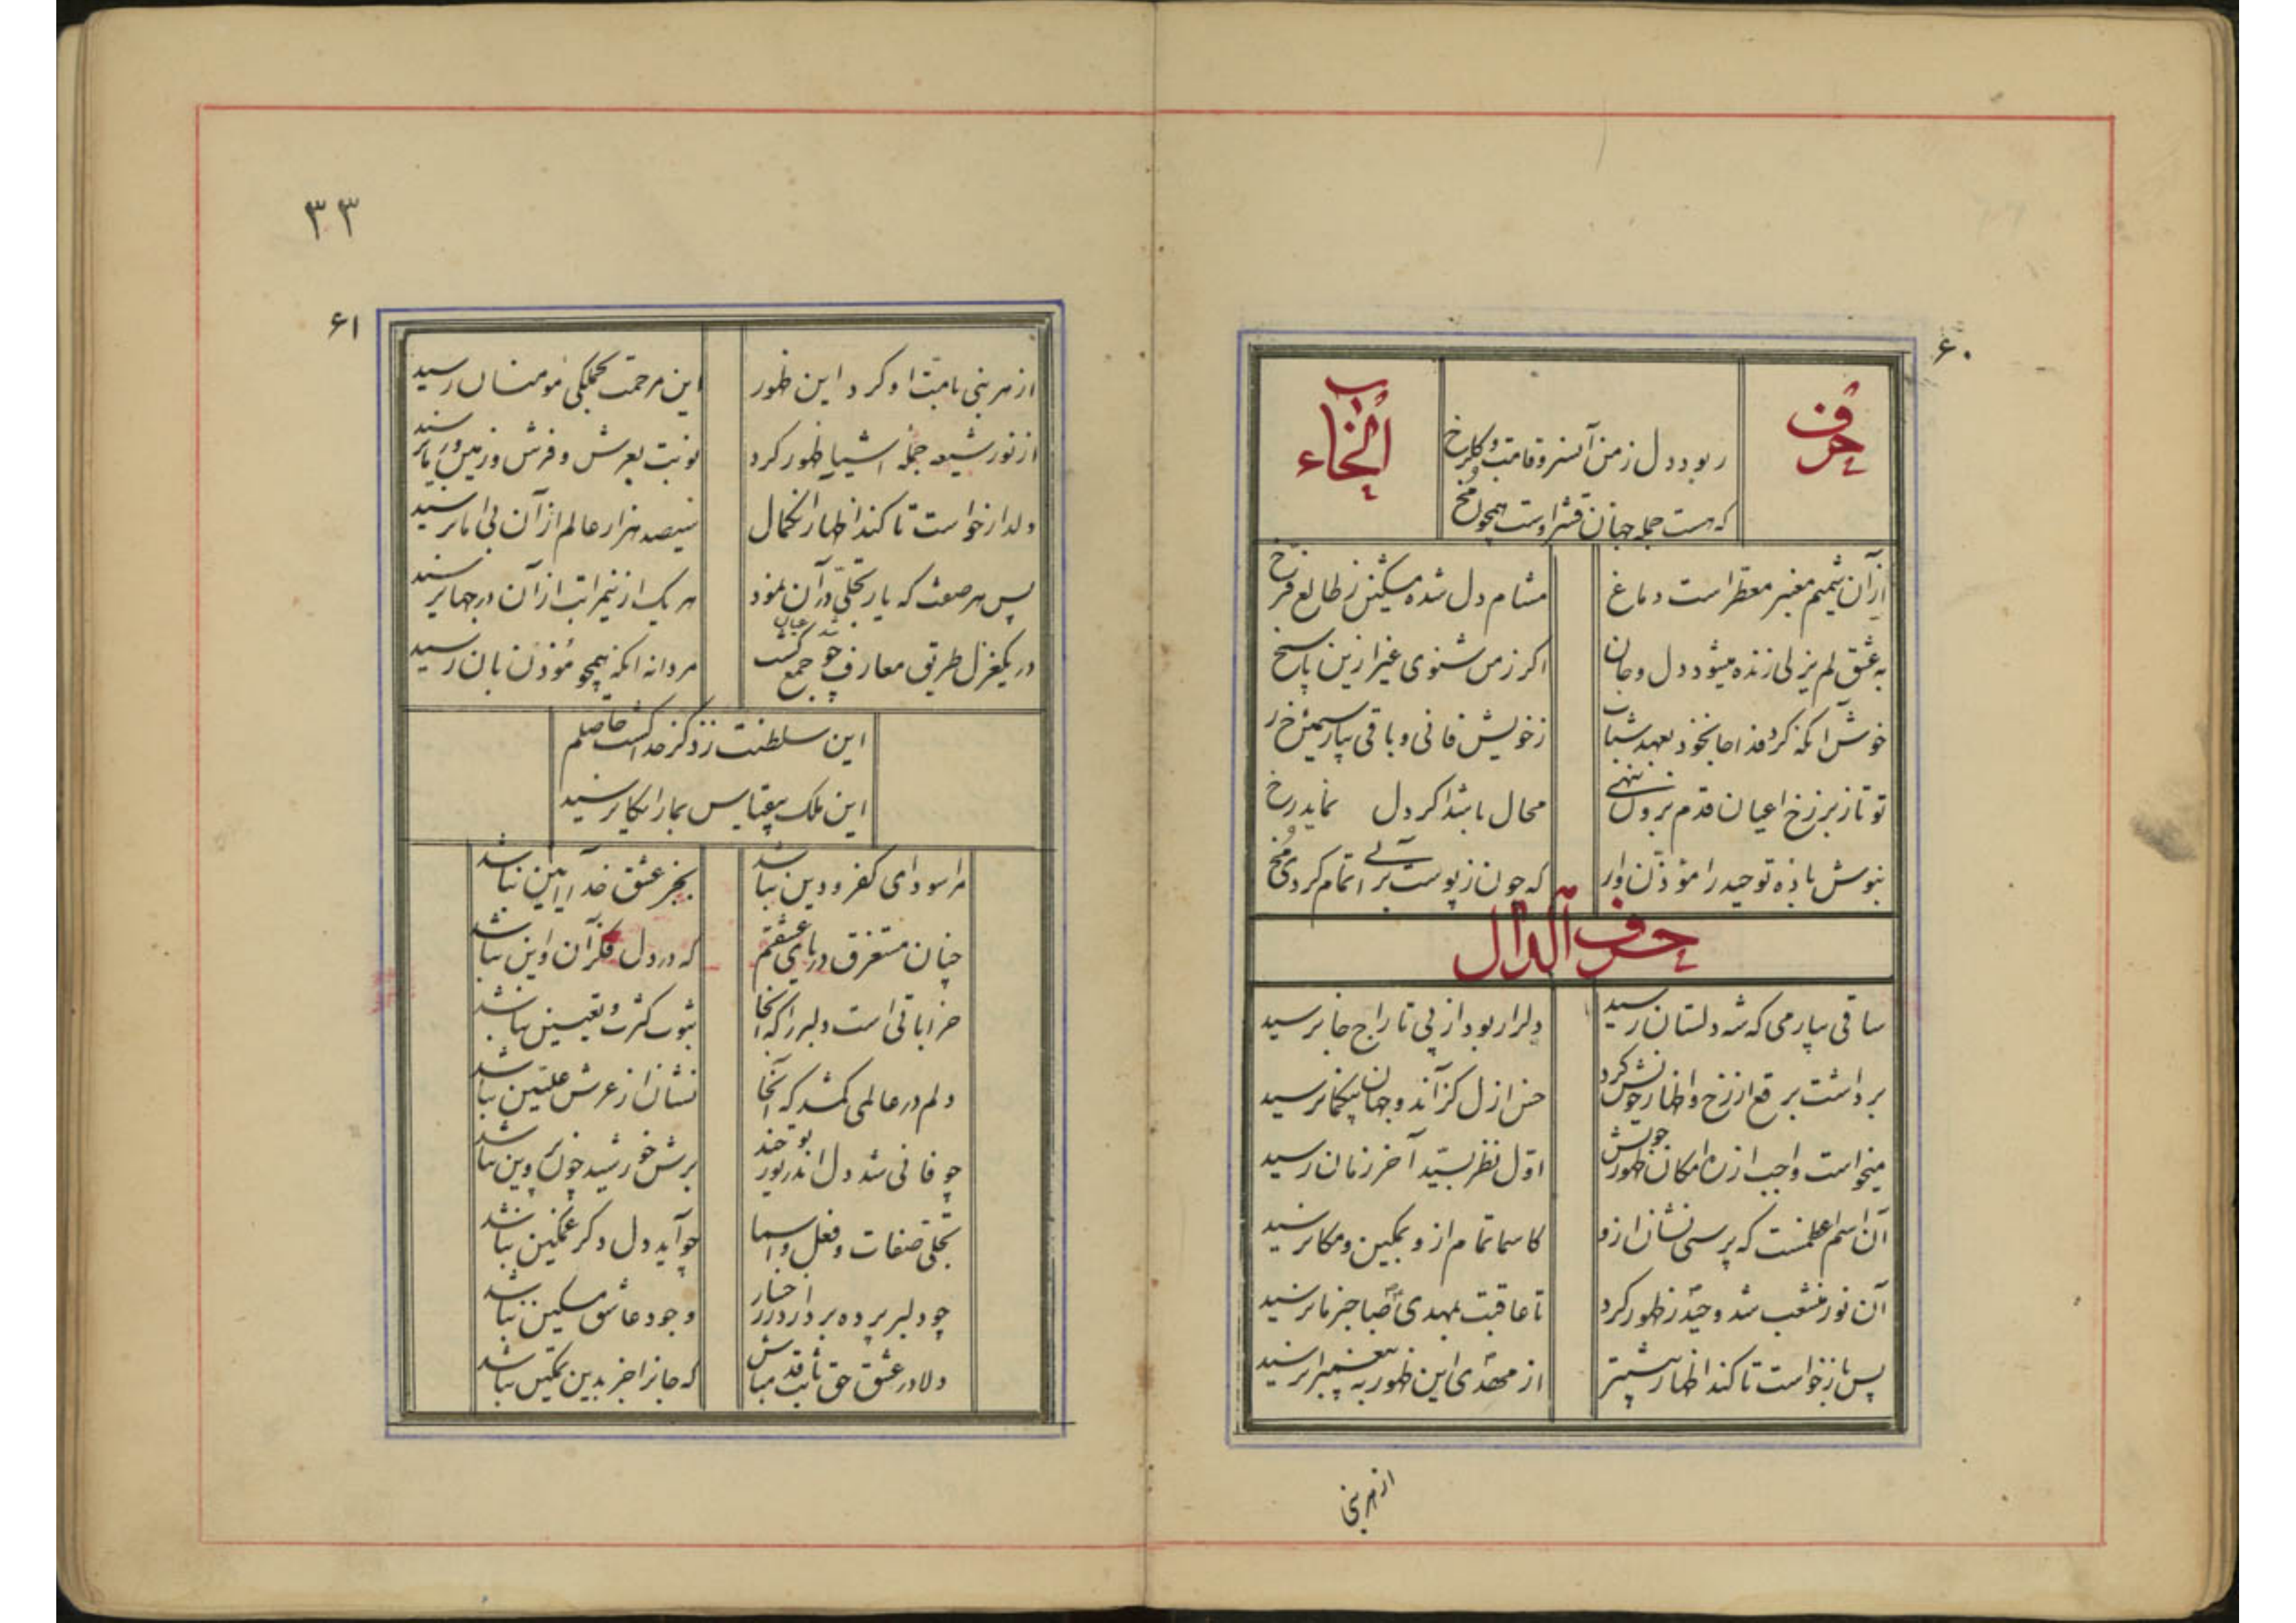 ۶۰
حرف الخاء
ربود دل ز من آنسرو قامت و گلرخ
که هست جمله جهان قشر اوست همچون مخ
از آن شمیم معنبر معطر است دماغ
مشام دل شده مشکین ز طالع فرخ
به عشق لم یزلی زنده میشود دل و جان
اکر ز من شنوی غیر ازین پاسخ
خوش آنکه کرد فدا جان خود بعهد شباب
ز خویش فانی و باقی بیار سیمین رخ
تو تا ز برزخ اعیان قدم برون ننهی
محال باشد اکر دل نماید رخ
بنوش باده توحید را مؤذن وار
که چون ز پوست برآئی تمام کردی مخ
حرف الدال
ساقی بیار می که شه دلستان رسید
دلرا ربود از پی تاراج جان رسید
برداشت برقع از رخ و اظهار خویش کرد
حسن ازل کز آن دو جهان بیکمان رسید
میخواست واجب از ره امکان ظهور خویش
اول نظر بسید آخر زمان رسید
آن اسم اعظمست که پرسی نشان ازو
کاسما تمام ازو بمکین و مکان رسید
آن نور منشعب شد و حیدر ظهور کرد
تا عاقبت بمهدی صاحبزمان رسید
پس باز خواست تا کند اظهار بیشتر
از مهدی این ظهور به پیغمبران رسید
از هر نبی
۳۳
۶۱
از هر نبی بامت او کرد این ظهور
این مرحمت بجملکی مومنان رسید
از نور شیعه جمله اشیا ظهور کرد
نوبت بعرش و فرش و زمین و زمان رسید
دلدار خواست تا کند اظهار انکمال
سیصد هزار عالم از آن بی امان رسید
پس هر صفت که یار تجلی در آن نمود
هر یک ازین مراتب از آن در جهان رسید
در یکغزل طریق معارف چو جمع کشت
شد عیان
مردانه انکه همچو مؤذن بان رسید
این سلطنت ز ذکر خدا کشت حاصلم
این ملک بیقیاس بما رایکان رسید
مرا سودای کفر و دین نباشد
بجز عشق خدا آیین نباشد
چنان مستغرق دریای عشقم
که در دل فکر آن و این نباشد
خراباتی است دلبر را که آنجا
ثبوت کثرت و تعیین نباشد
دلم در عالمی کمشد که آنجا
نشان از عرش علیین نباشد
چو فانی شد دل اندر نور خود
برش خورشید چون پروین نباشد
تجلی صفات و فعل و اسما
چو آید دل دکر غمکین نباشد
چو دلبر پرده بردارد ز رخسار
وجود عاشق مسکین نباشد
دلا در عشق حق ثابت قدم باش
که جانرا جز بدین تمکین نباشد